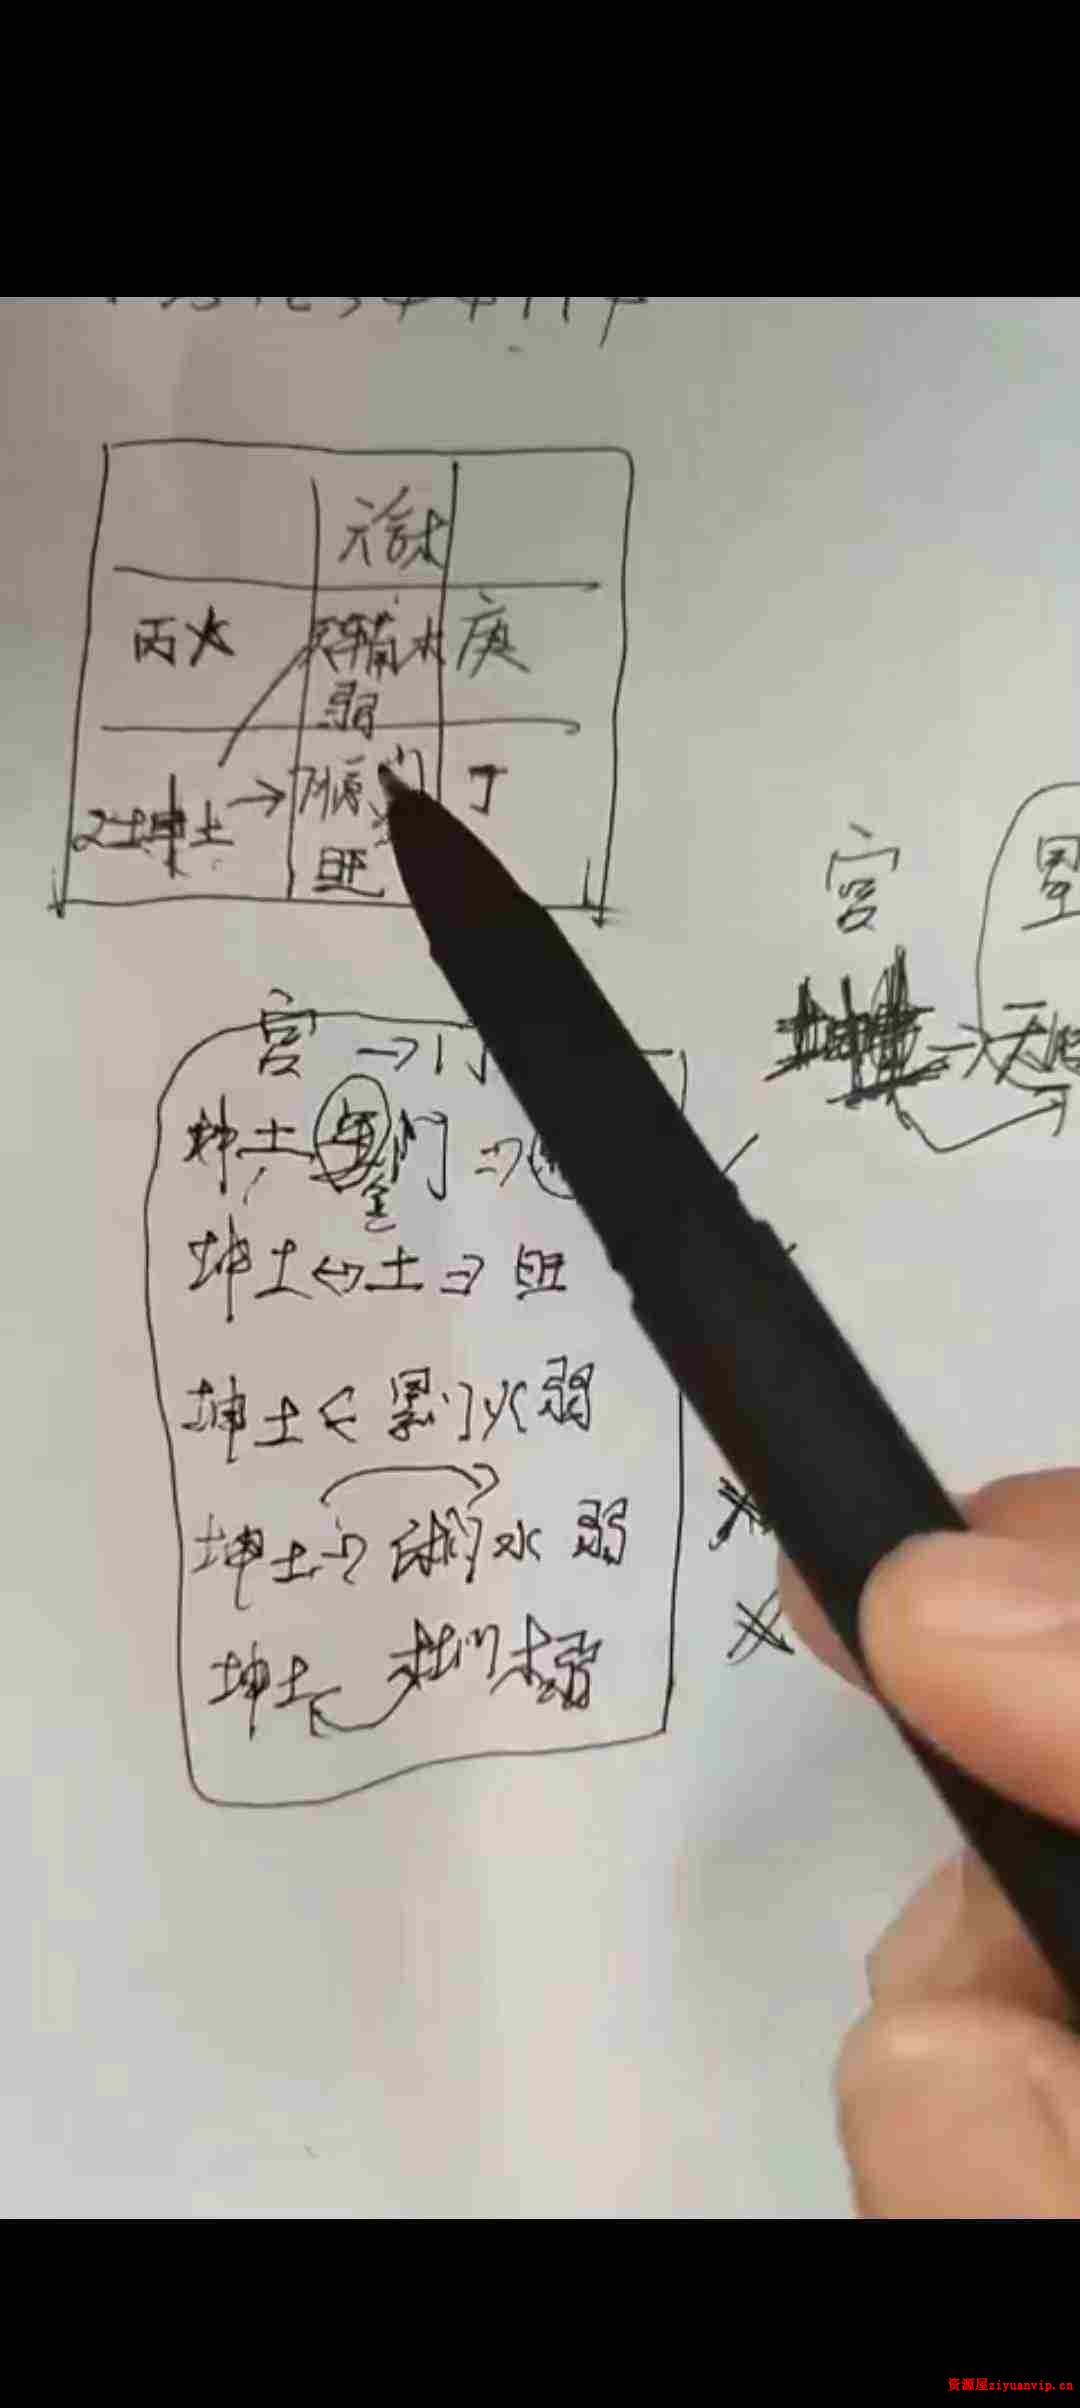 六合木
丙火 天辅木 庚
弱
坤土 → 门 丁
旺
宫 星
宫 → 门
→ 天
坤土 门 →
金
坤土 ↔ 土 → 旺
坤土 ← 景门火弱
坤土 → 休门水 弱
坤土 杜门木弱
资源屋ziyuanvip.cn